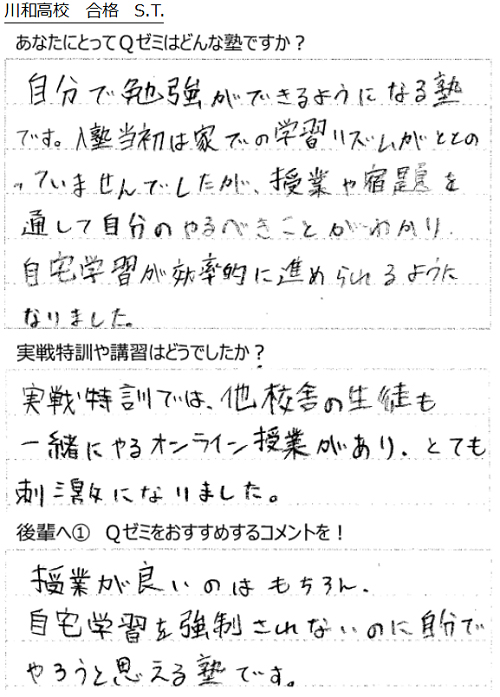 川和高校　合格　S.T.
あなたにとってQゼミはどんな塾ですか？
自分で勉強ができるようになる塾
です。入塾当初は家での学習リズムがととの
っていませんでしたが、授業や宿題を
通して自分のやるべきことがわかり、
自宅学習が効率的に進められるように
なりました。
実戦特訓や講習はどうでしたか？
実戦特訓では、他校舎の生徒も
一緒にやるオンライン授業があり、とても
刺激になりました。
後輩へ①　Qゼミをおすすめするコメントを！
授業が良いのはもちろん、
自宅学習を強制されないのに自分で
やろうと思える塾です。